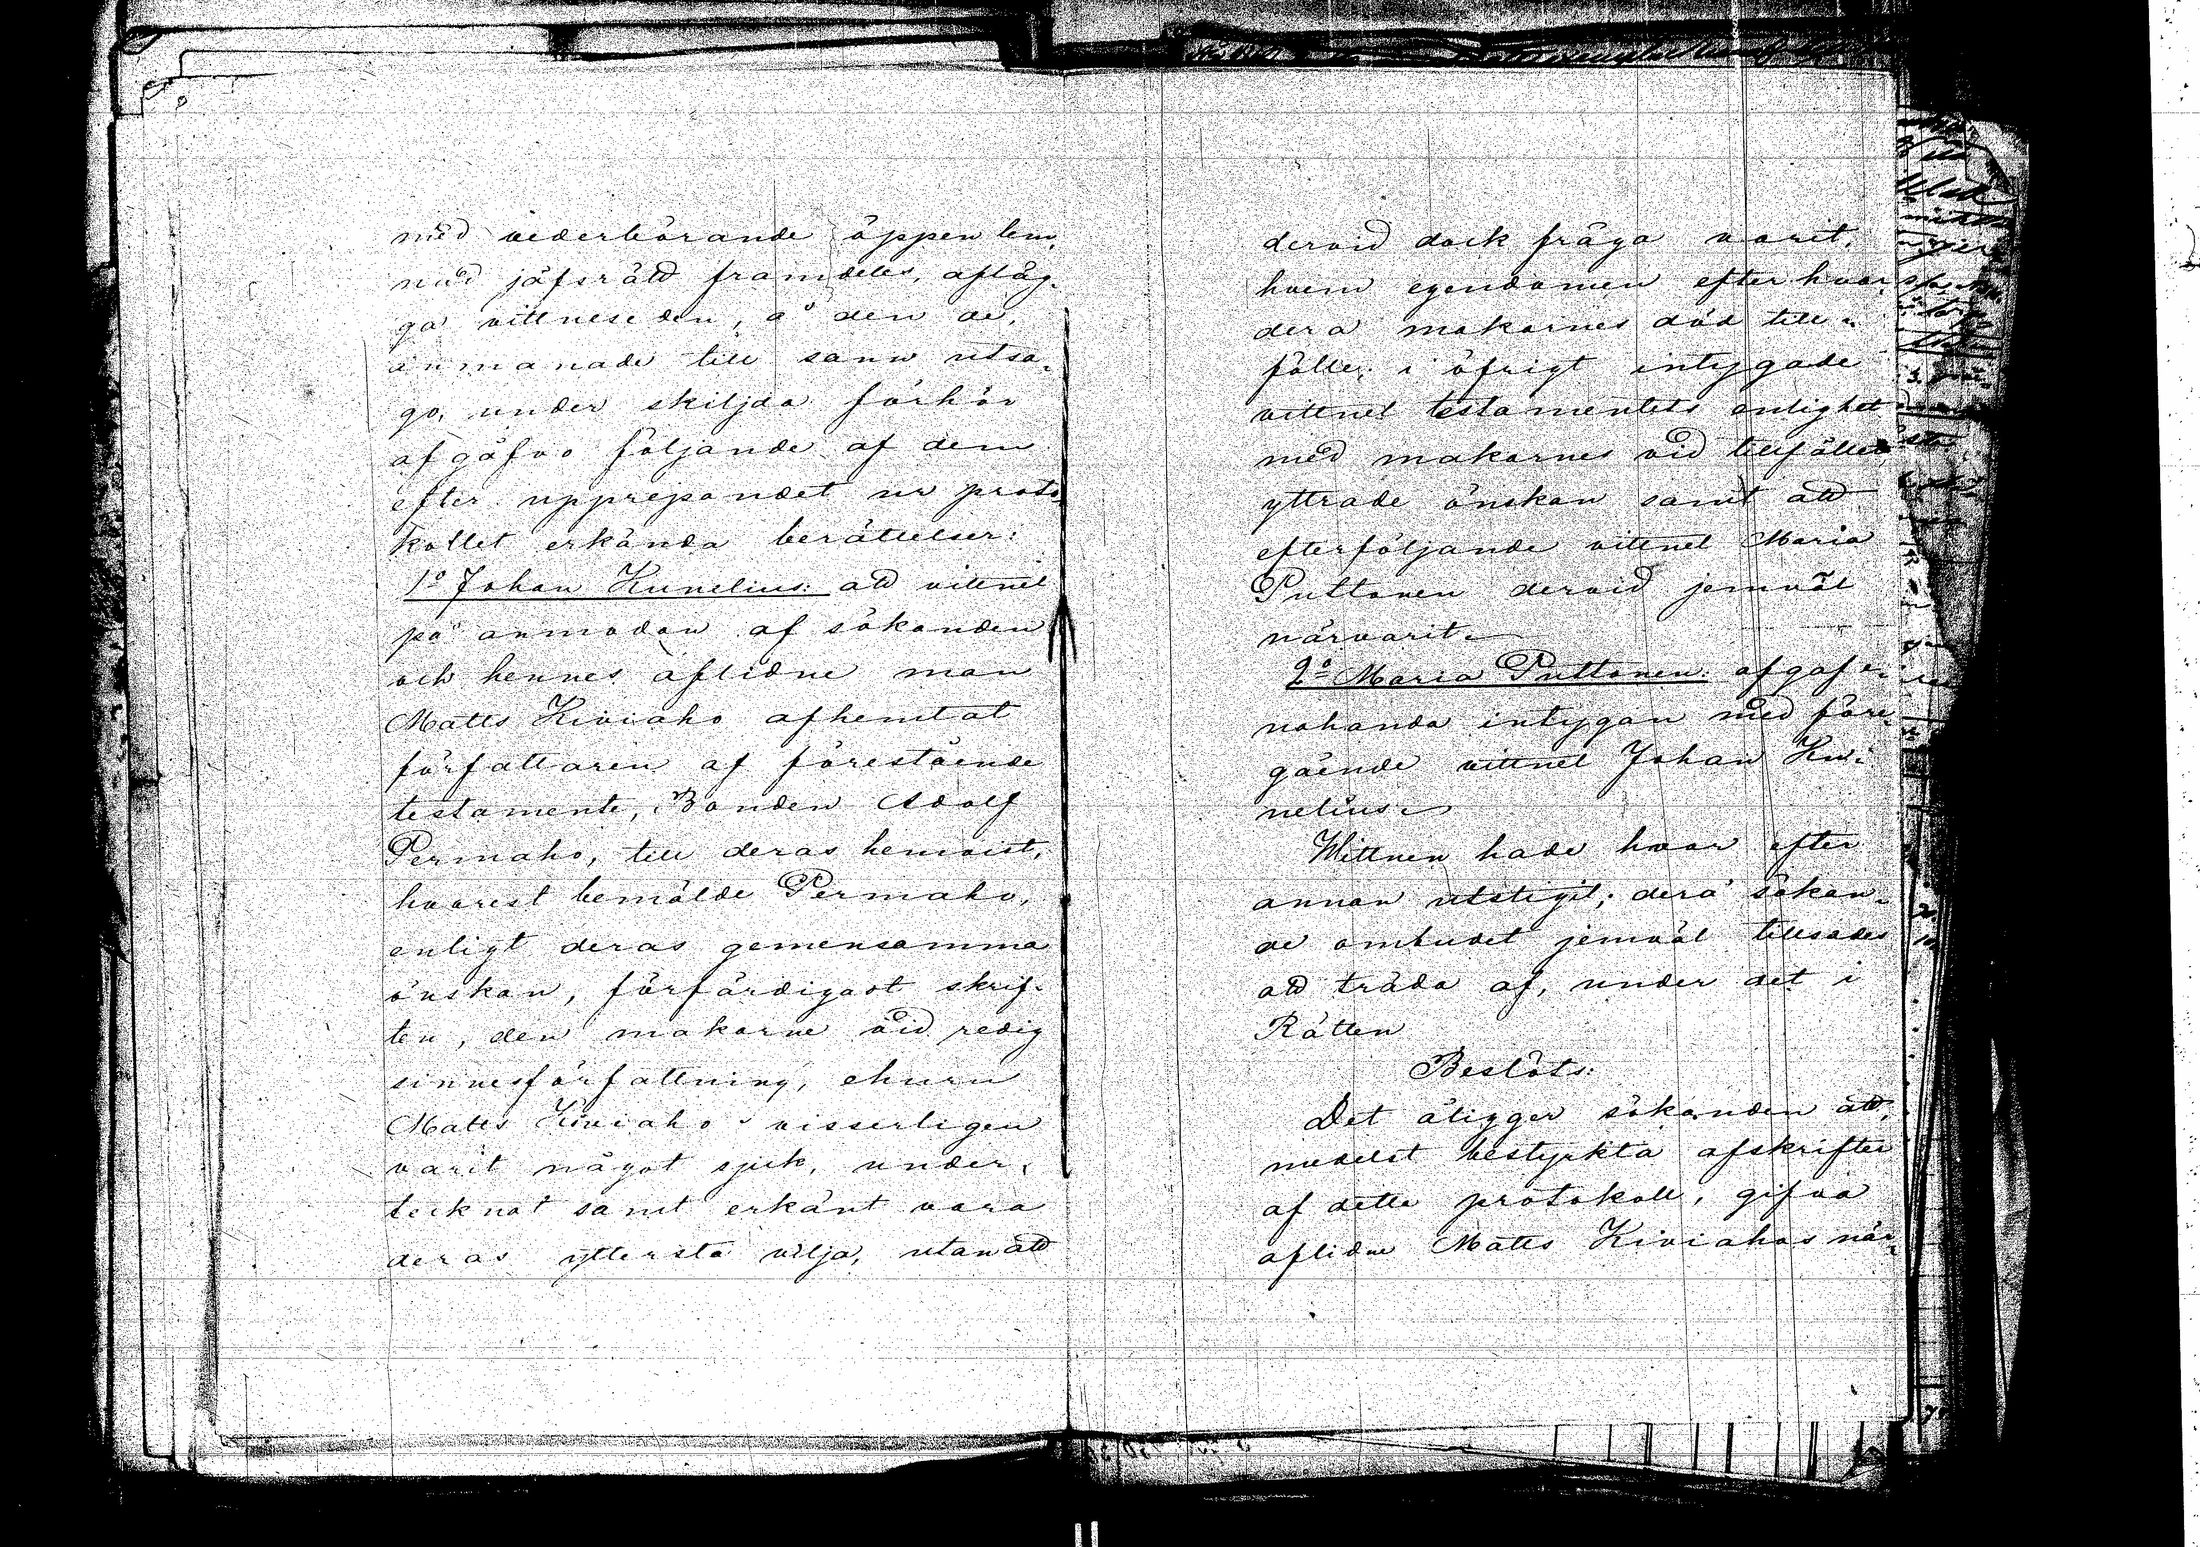 med vederbörande öppen lem¬
nad jäfsrätt framdeles, aflägg¬
ga vittneseden, å den de,
anmanade till sann utsa¬
go, under skiljda förhör
afgåfvo följande af dem
efter upprepandet ur proto¬
kollet erkända berättelser:
1o Johan Kunelius: att vittnet
på anmodan af sökanden
och hennes aflidne man
Matts Kiviaho afhemtat
författaren af förestående
testamente, Bonden Adolf
Permaho, till deras hemvist,
hvarest bemälde Permaho,
enligt deras gemensamma
önskan, förfärdigat skrif¬
ten, den makarne vid redig
sinnesförfattning, ehuru
Matts Kiviaho visserligen
varit något sjuk, under¬
tecknat samt erkänt vara
deras yttersta vilja, utan att
dervid dock fråga varit,
hvem egendomen efter hvar¬
dera makarnes död till¬
fölle; i öfrigt intygade
vittnet testamentets enlighet
med makarnes vid tillfället
yttrade önskan samt att
efterföljande vittnet Maria
Puttonen dervid jemväl
närvarit.
2o Maria Puttonen: afgaf e¬
nahanda intygan med före¬
gående vittnet Johan Ku¬
nelius.
Wittnen hade hvar efter
annan utstigit; derå sökan¬
de ombudet jemväl tillsades
att träda af, under det i
Rätten
Beslöts:
Det åligger sökanden att,
medelst bestyrkta afskrifter
af detta protokoll, gifva
aflidne Matts Kiviahos när¬